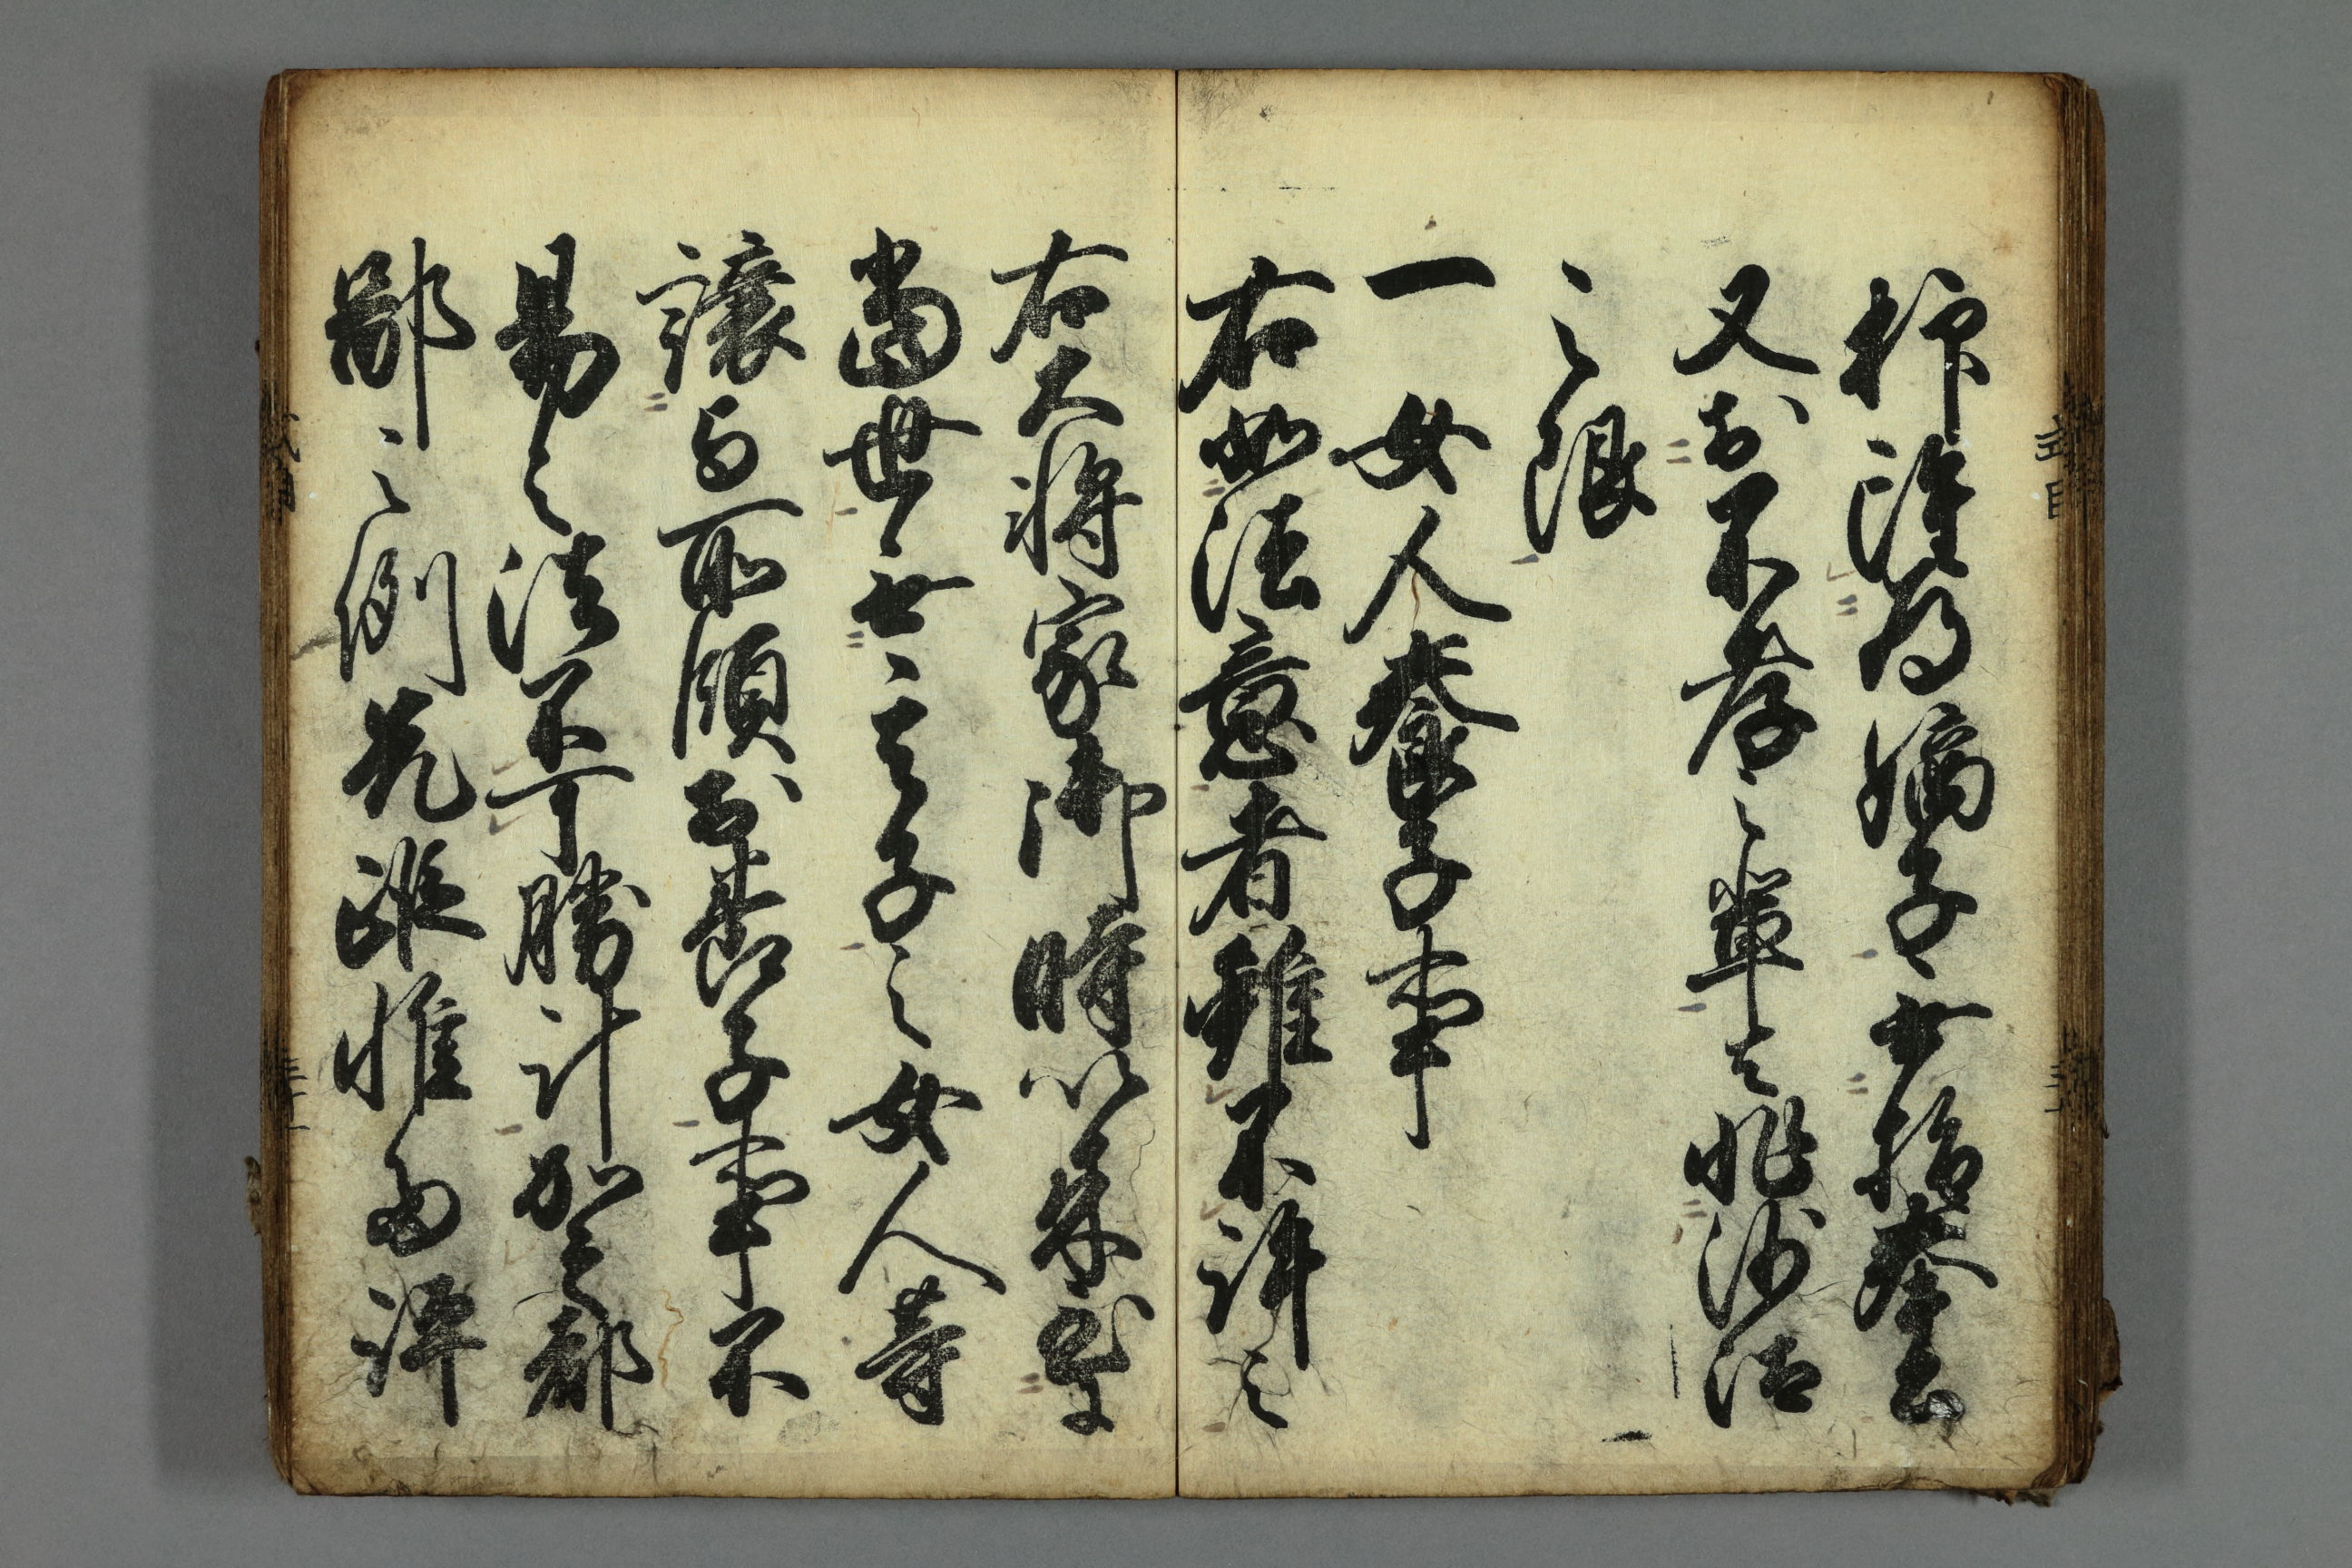 抑雖為嫡子無指奉公
又於不孝之輩者非沙汰
之限
一女人養子事
右如法意者雖不許之
右大将家御時以来至于
當世無其子之女人等
讓与所領於養子事不
易之法不可勝計加之都
鄙之例先蹤惟多評